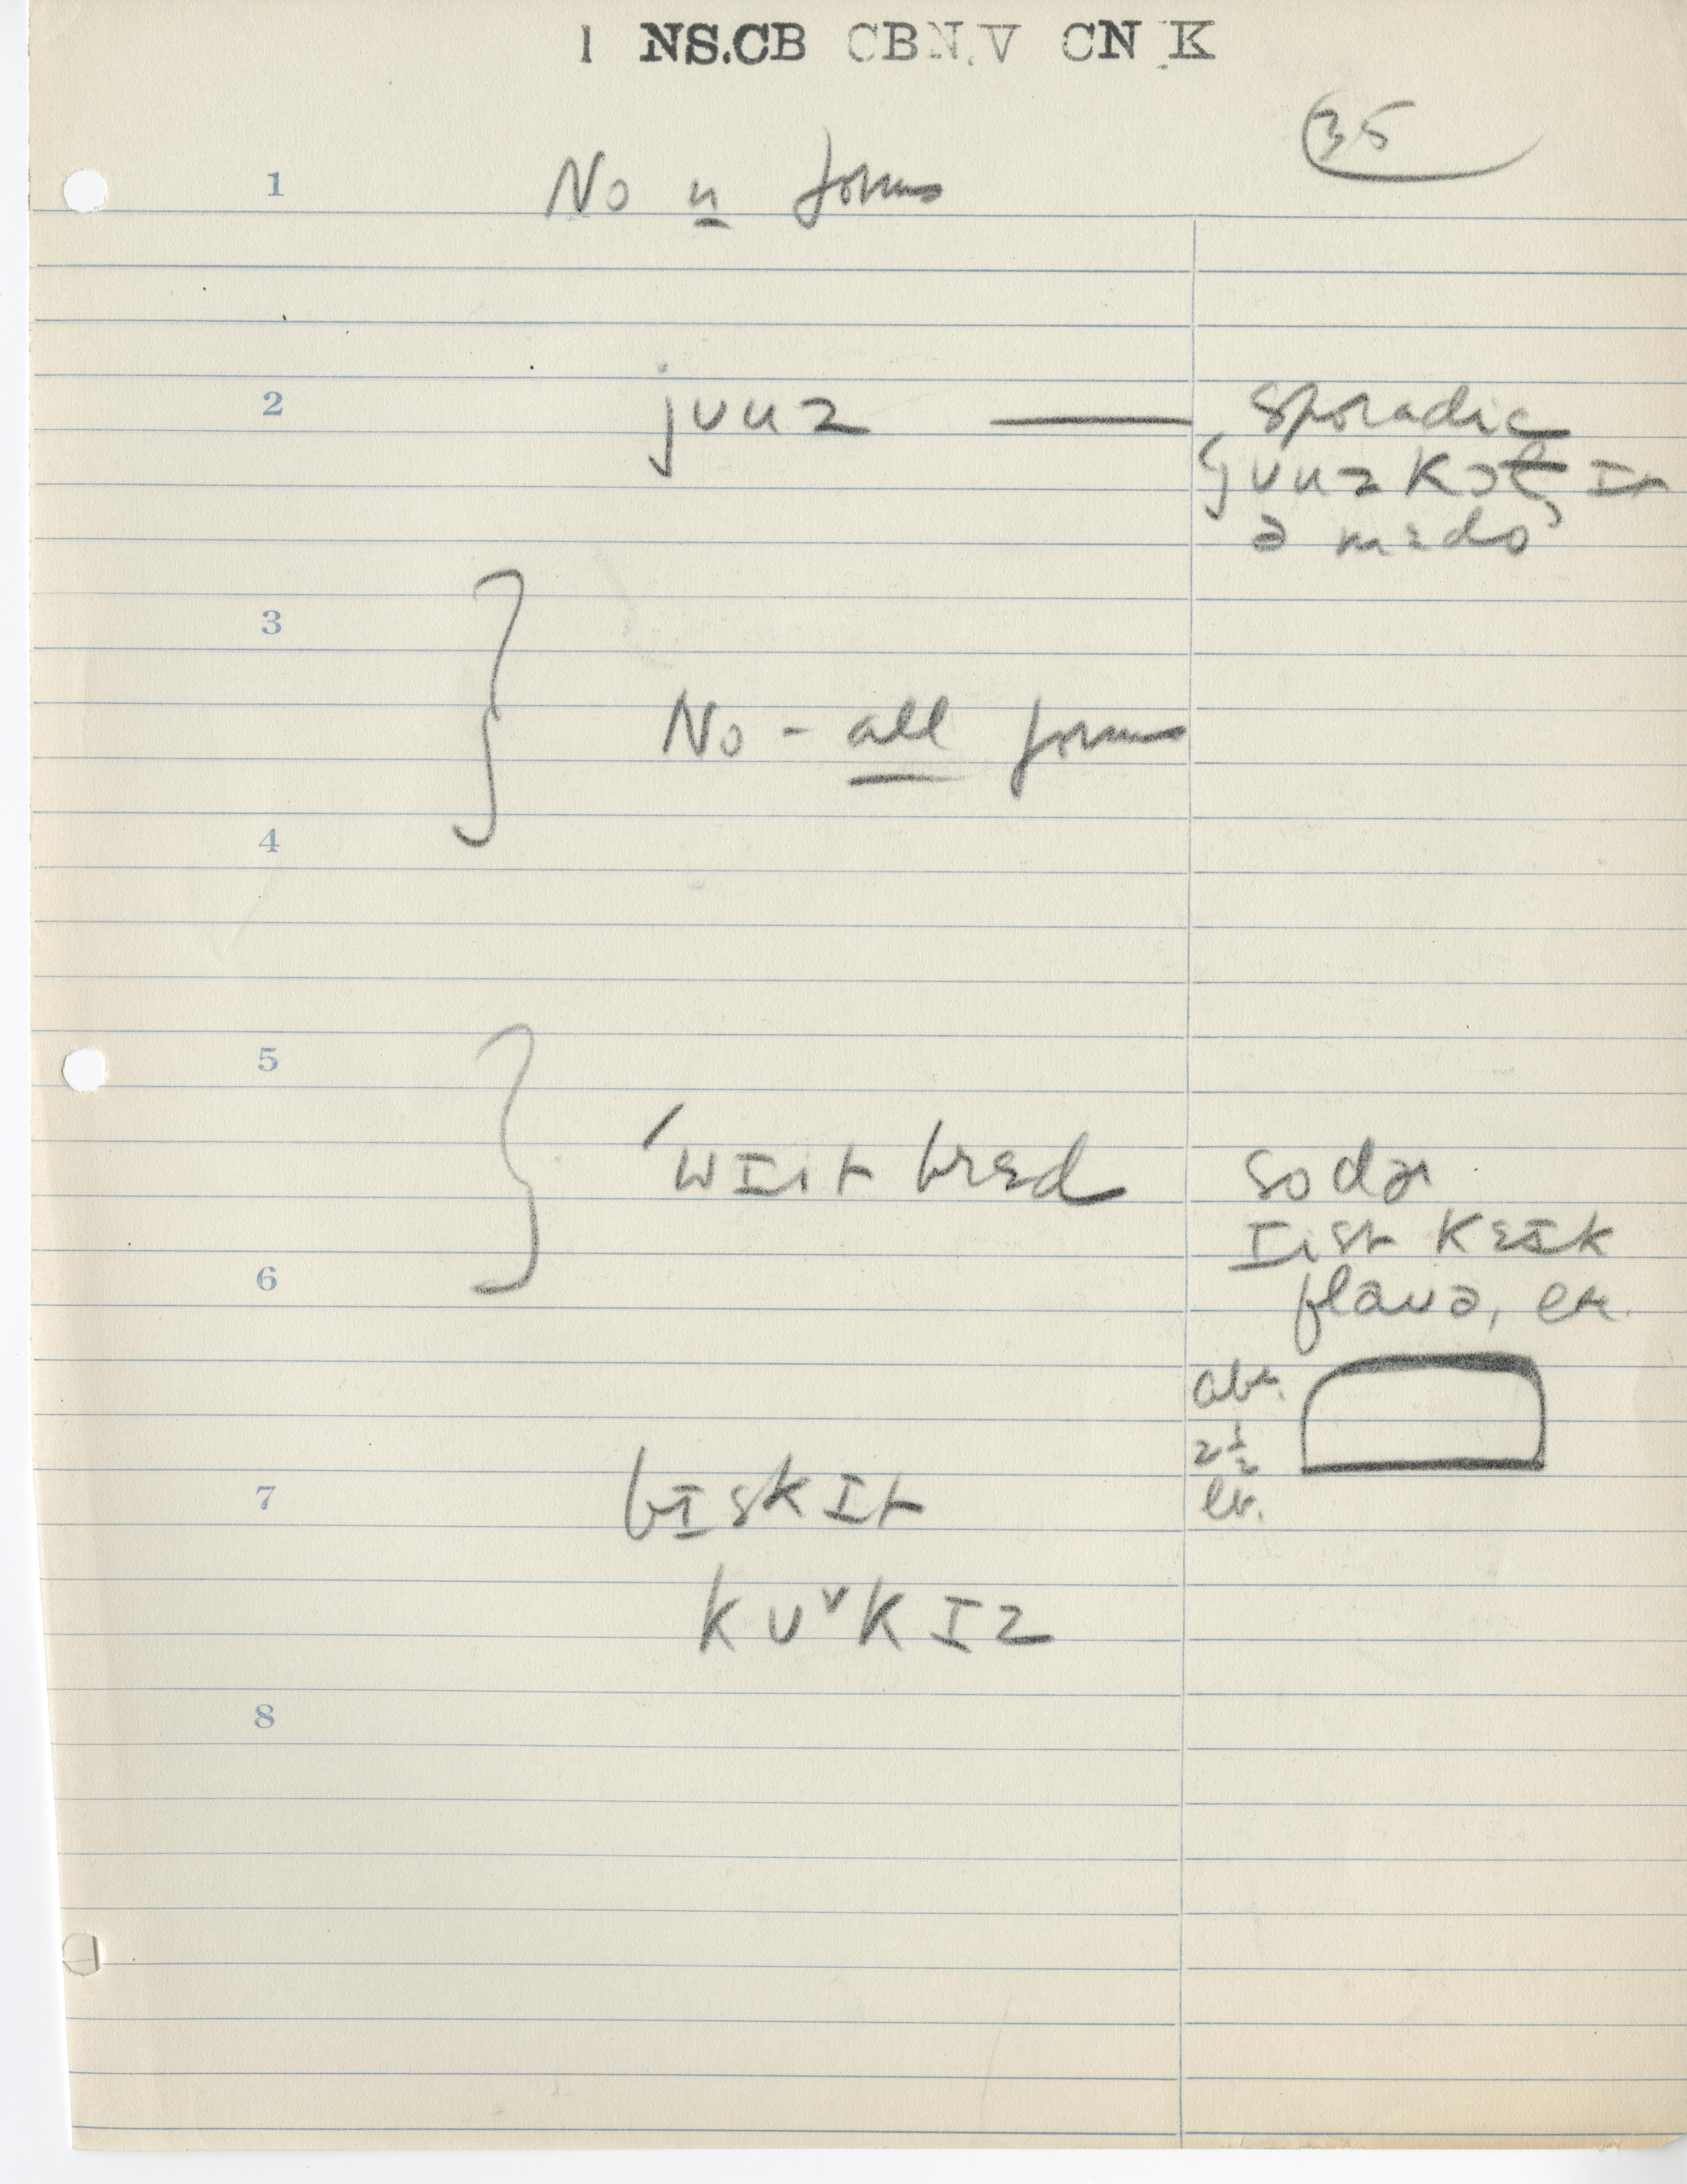 1 NS.CB CBN.V CN K
35
1 No n forms
2 juuz — sporadic
juuz kɔt ɪt
ə mɛdo
3
No - all forms
4
5
'wɪit brɛd sodə
6 ɪist kɛɪk
flauə, etc.
abt.
2½
lb.
7 bɪskɪt
kuᵛkɪz
8